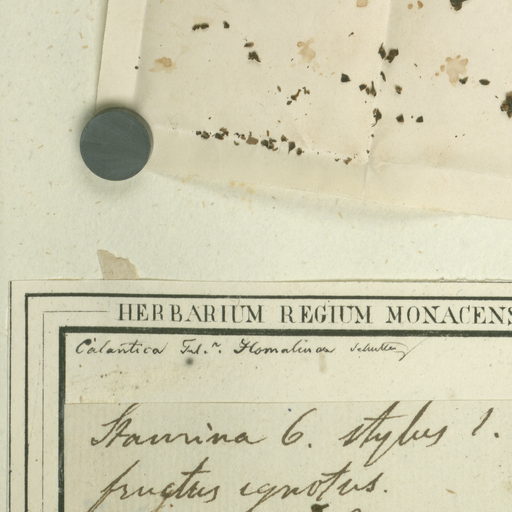 HERBARIUM REGIUM MONACENS
Calantica Tul.ⁿ. Homalinae
Stamina 6. stylus 1.
fructus ignotus.